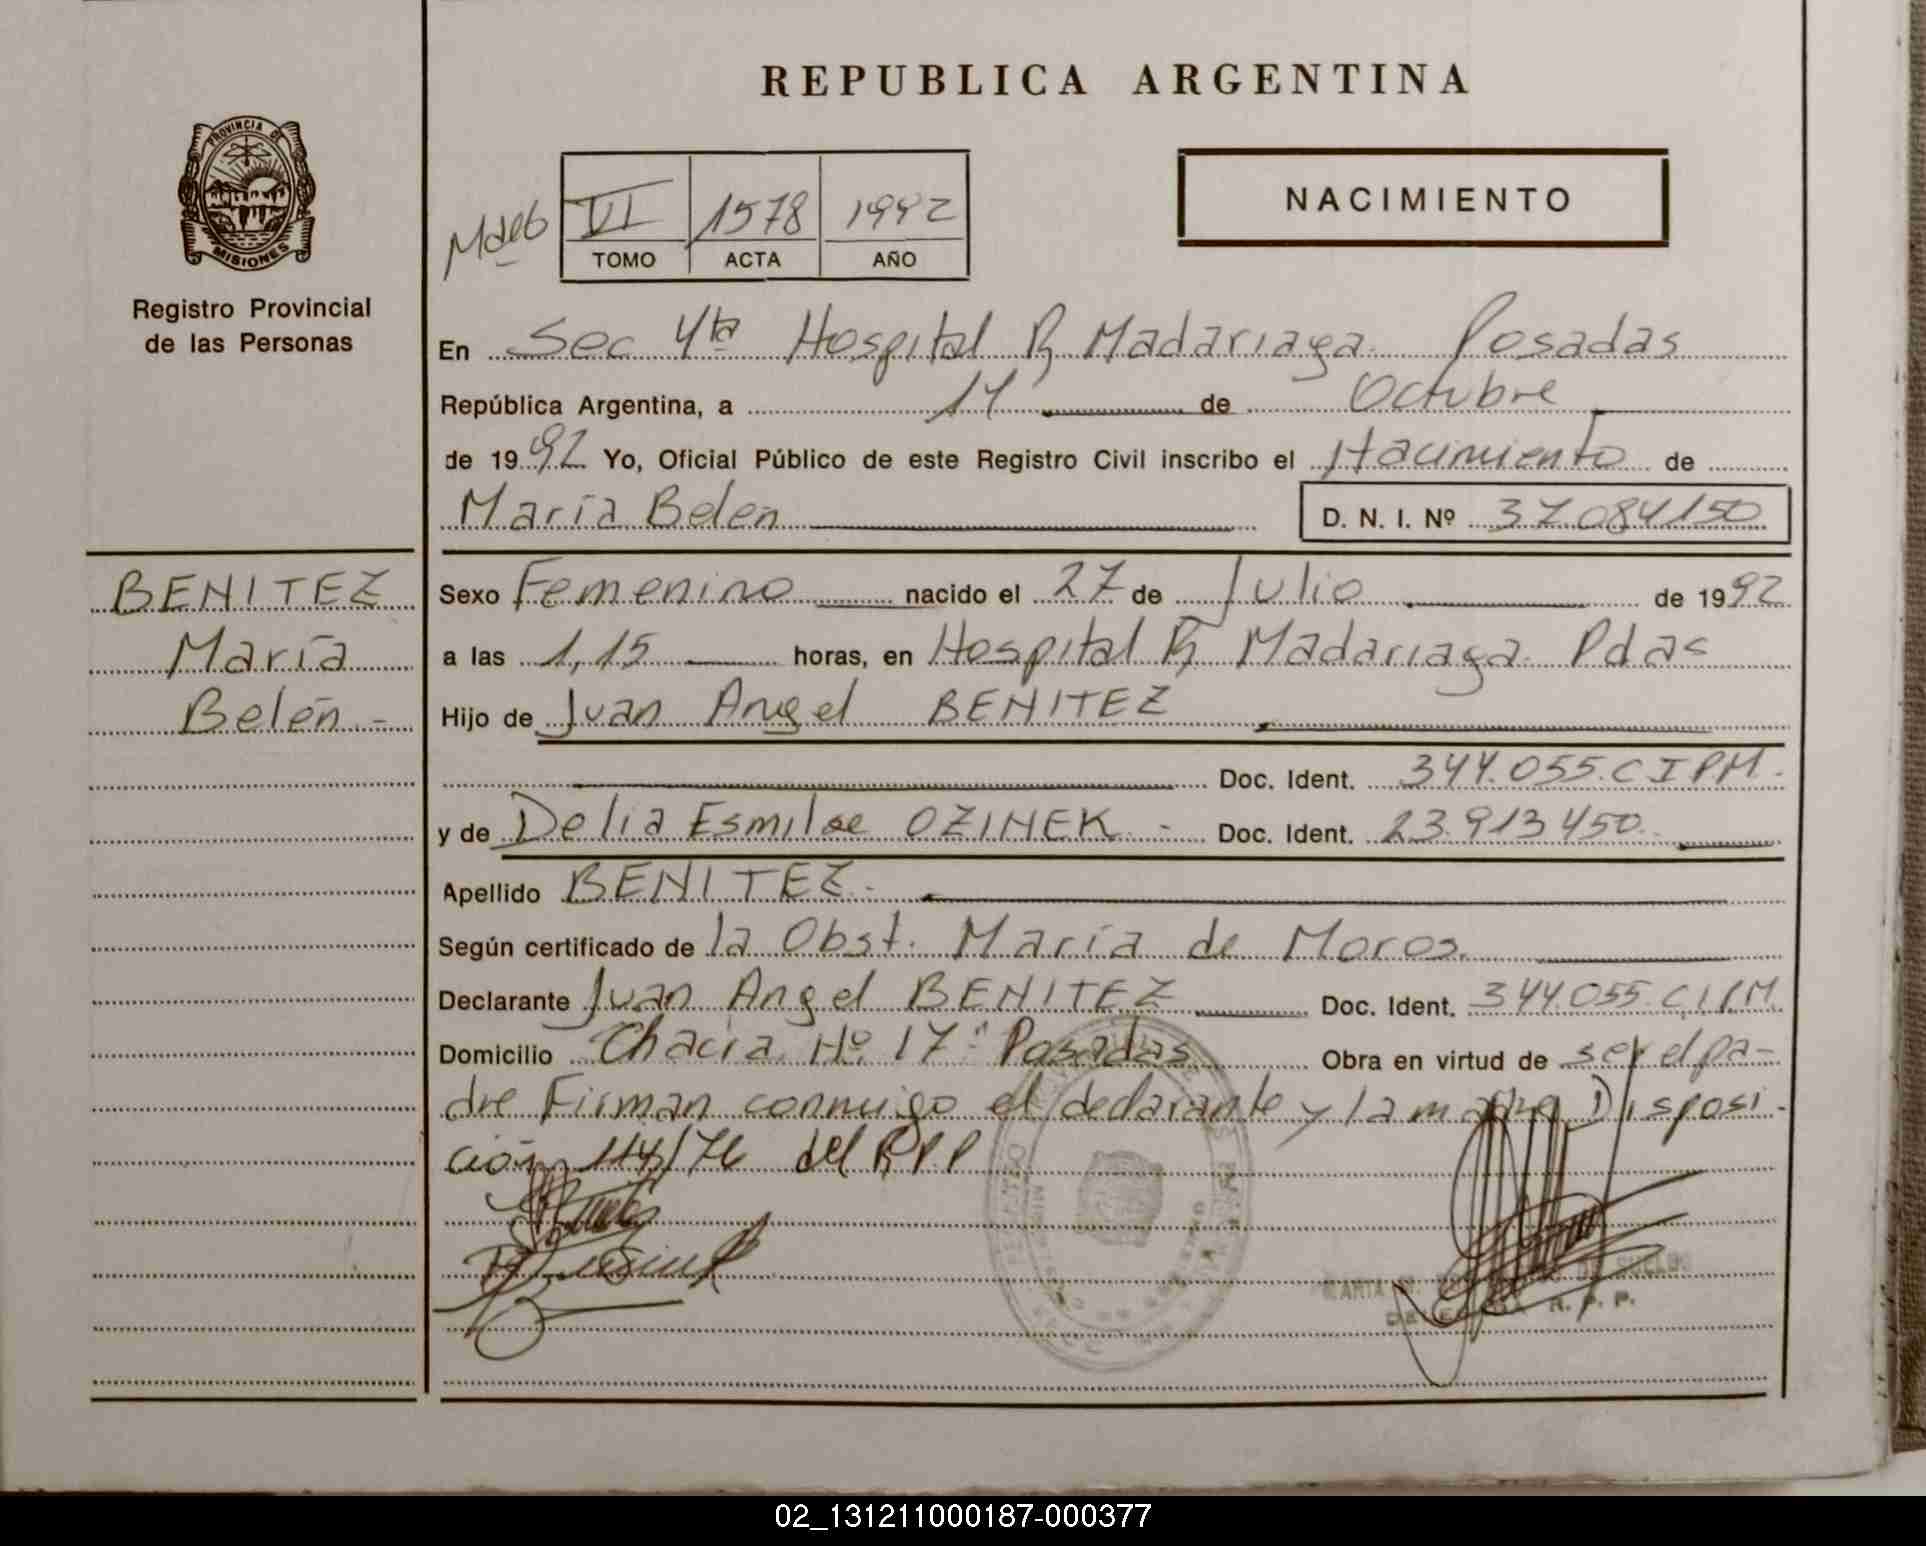 REPUBLICA ARGENTINA
PROVINCIA DE
MISIONES
Registro Provincial
de las Personas
VI 1578 1992
TOMO ACTA AÑO
NACIMIENTO
En Sec 4ta Hospital R Madariaga Posadas
República Argentina, a 14 de Octubre
de 1992 Yo, Oficial Público de este Registro Civil inscribo el Nacimiento de
María Belén D. N. I. Nº 37.084150
BENITEZ
María
Belén.-
Sexo Femenino nacido el 27 de Julio de 1992
a las 1,15 horas, en Hospital R Madariaga Pdas
Hijo de Juan Angel BENITEZ
Doc. Ident. 344.055.CIPM.
y de Delia Esmilse OZINEK.- Doc. Ident. 23.913450.
Apellido BENITEZ.-
Según certificado de la Obst. María de Moros.
Declarante Juan Angel BENITEZ Doc. Ident. 344.055.CIPM
Domicilio Chacra Nº 17" Posadas Obra en virtud de ser el pa-
dre Firman conmigo el declarante y la madre Disposi-
ción 114/76 del R.P.P
R. P. P.
02_131211000187-000377